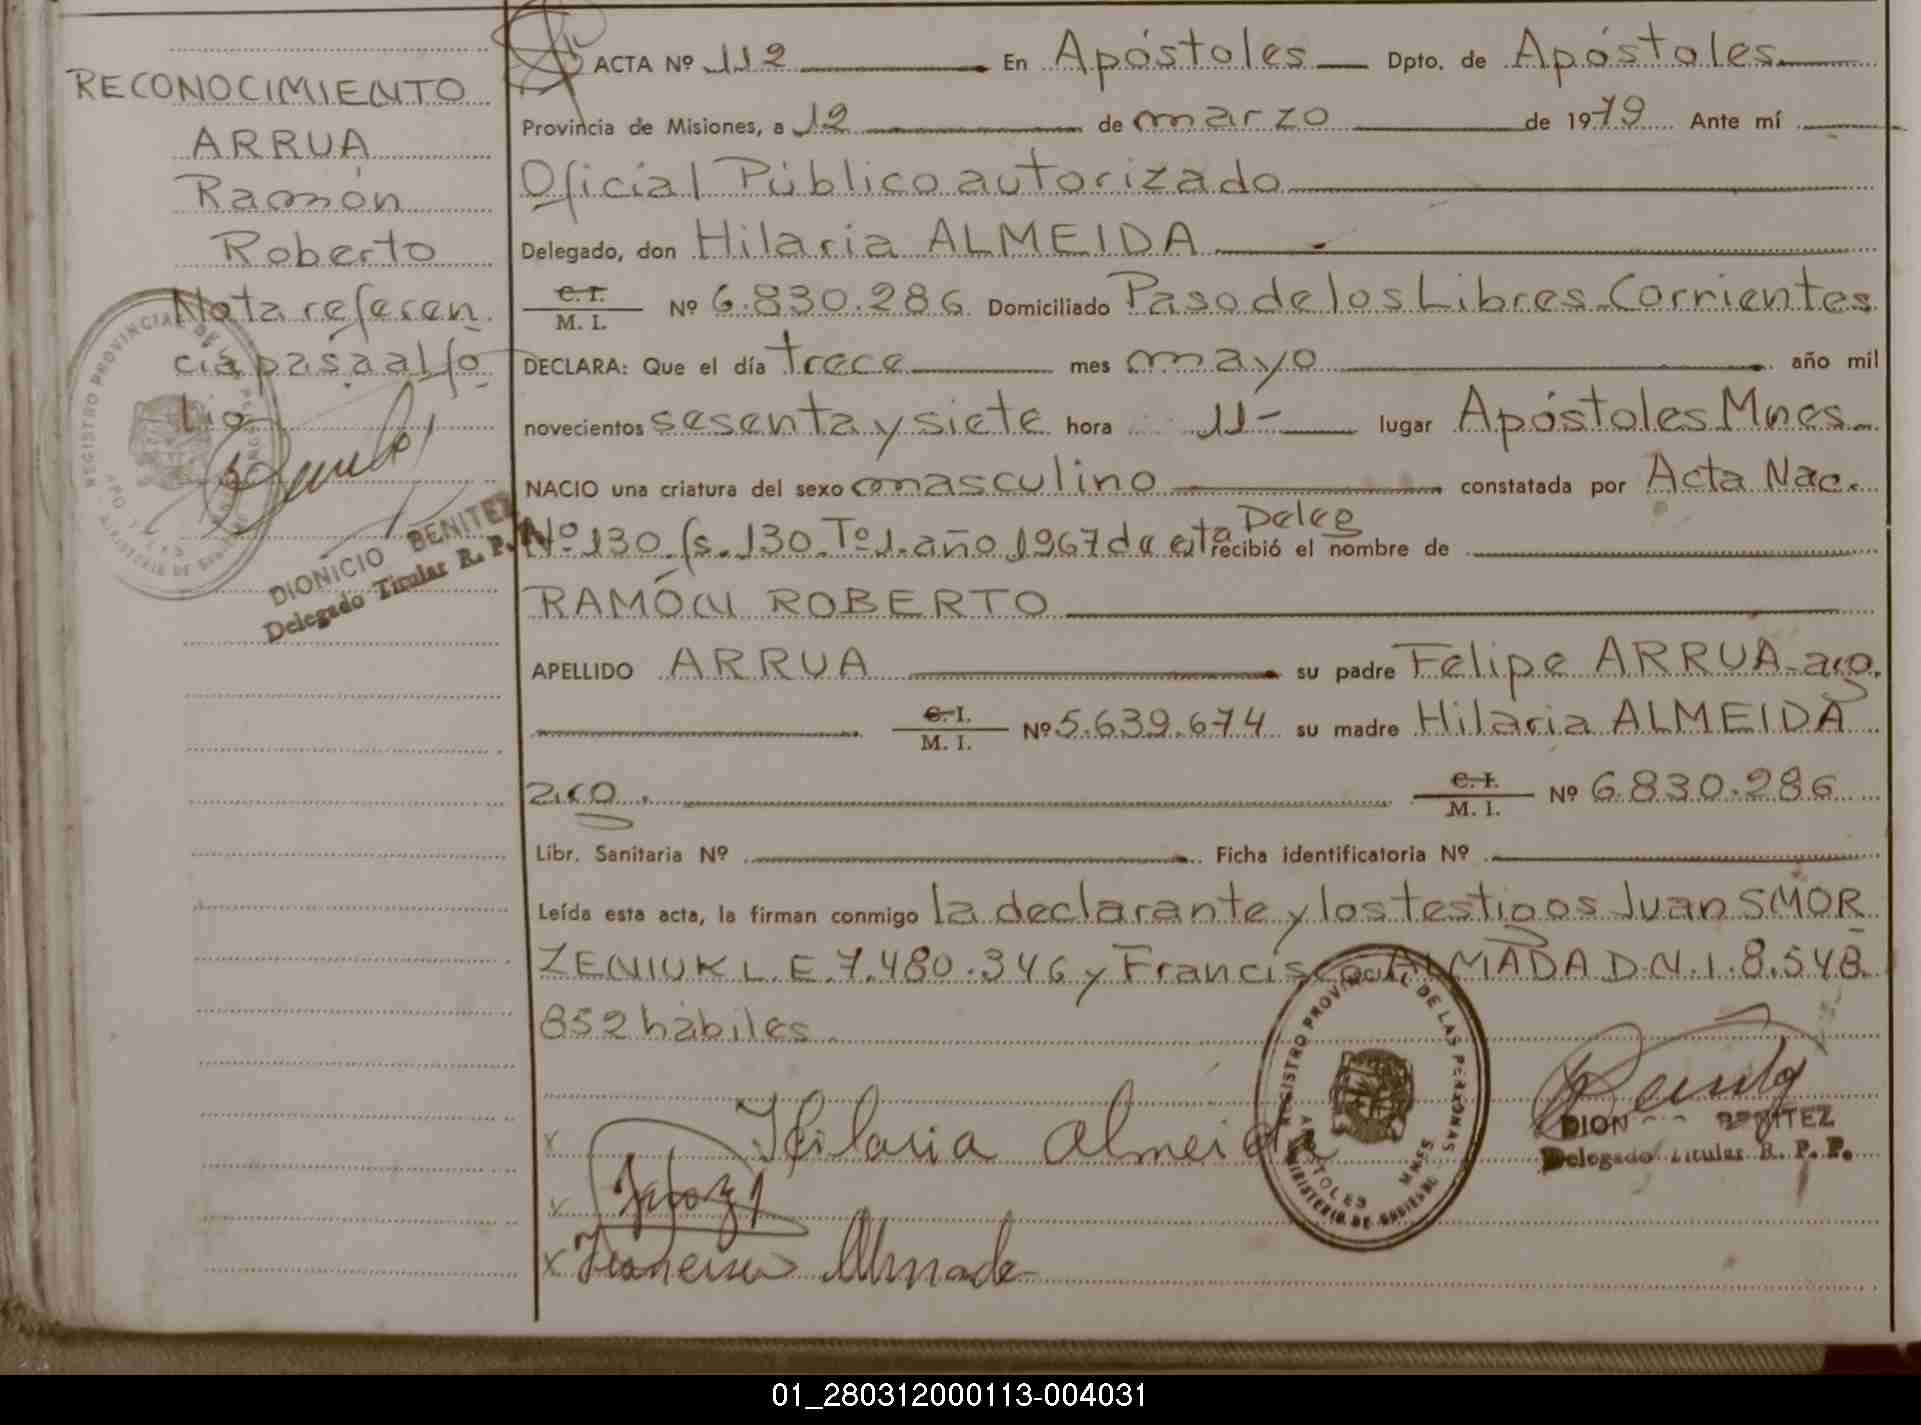 RECONOCIMIENTO
ARRUA
Ramón
Roberto
Nota referen
cia pasa al fo
lio
REGISTRO PROVINCIAL DE
DIONICIO BENITEZ
Delegado Titular R. P. P.
ACTA Nº 112 En Apóstoles Dpto. de Apóstoles
Provincia de Misiones, a 12 de marzo de 1979 Ante mí
Oficial Público autorizado
Delegado, don Hilaria ALMEIDA
C. I. / M. I. Nº 6.830.286 Domiciliado Paso de los Libres-Corrientes
DECLARA: Que el día trece mes mayo año mil
novecientos sesenta y siete hora 11- lugar Apóstoles Mnes.
NACIO una criatura del sexo masculino constatada por Acta Nac.
Nº 130 fs. 130 Tº 1. año 1967 de esta Deleg recibió el nombre de
RAMÓN ROBERTO
APELLIDO ARRUA su padre Felipe ARRUA- arg.
C. I. / M. I. Nº 5.639.674 su madre Hilaria ALMEIDA
arg. C. I. / M. I. Nº 6.830.286
Libr. Sanitaria Nº Ficha identificatoria Nº
Leída esta acta, la firman conmigo la declarante y los testigos Juan SMOR
ZENIUK L.E. 7.480.346 y Francisco ALMADA D.N.I. 8.548.
852 habiles.
Hilaria Almeida
Francisco Almada
REGISTRO PROVINCIAL DE LAS PERSONAS
APOSTOLES MNES
MINISTERIO DE GOBIERNO
DION BENITEZ
Delegado Titular R. P. P.
01_280312000113-004031